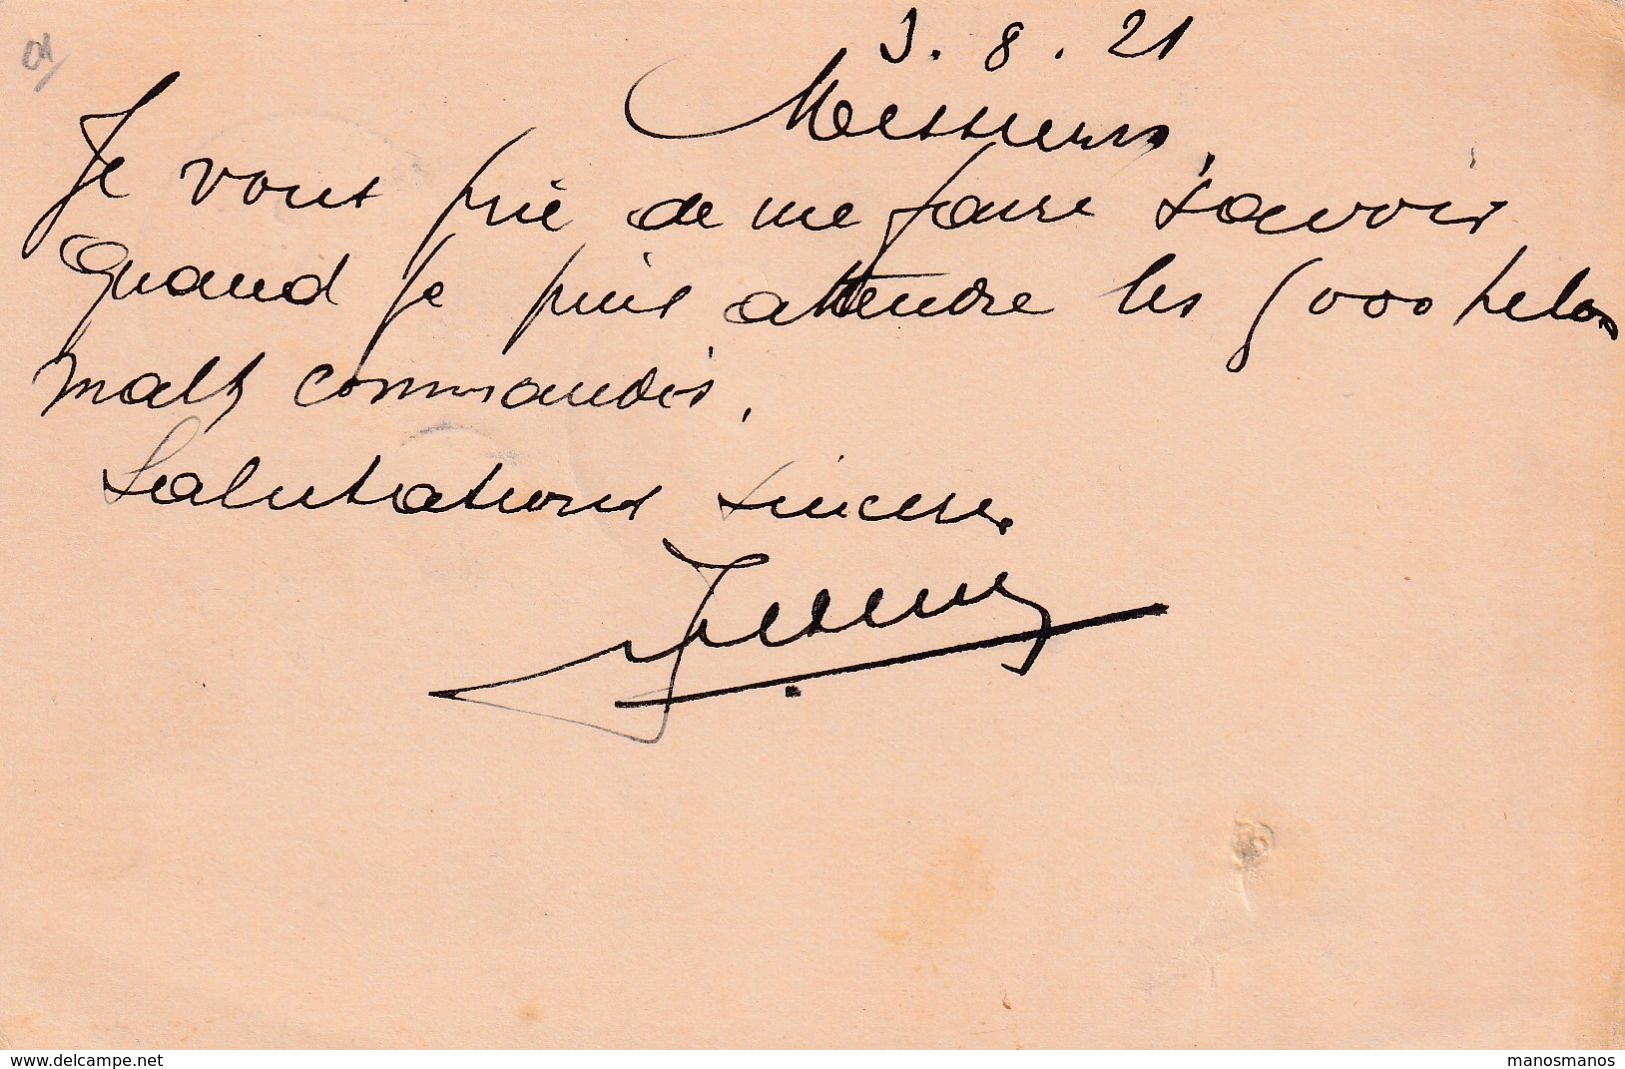 3.8.21
Messieurs,
Je vous prie de me faire savoir
quand je puis attendre les 5000 kilos
malt commandés.
Salutations sincères
www.delcampe.net
manosmanos